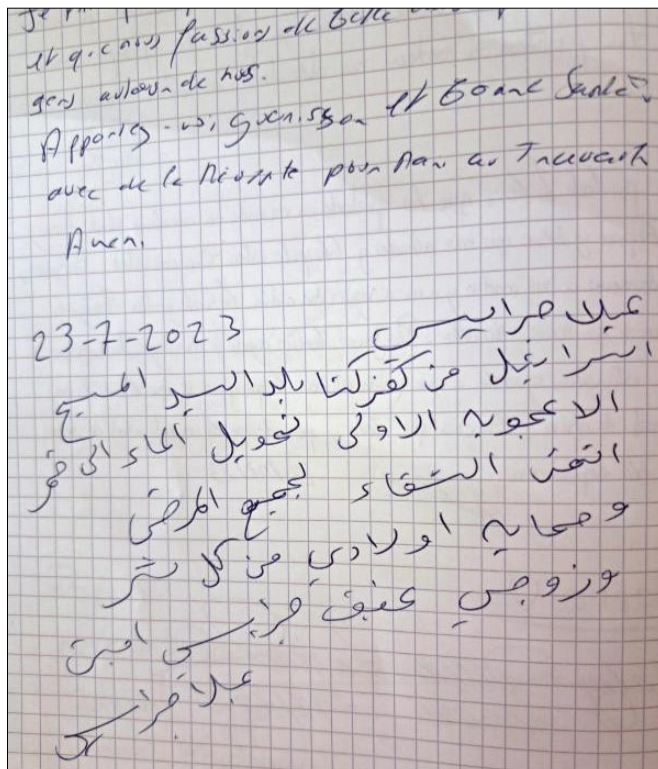 et que nous fassions de belle
gens autour de nous.
Apportez-nous guérisson et bonne santé
avec de la Réussite pour Man au Travail
Amen.
عبلا جرايس 23-7-2023
اسرائيل من كفركنا بلد السيد المسيح
الاعجوبه الاولى تحويل الماء الى خمر
اتمنى الشفاء لجميع المرضى
وحمايه اولادي من كل شر
وزوجي عفيف جرايسي امين
عبلا جرايسي